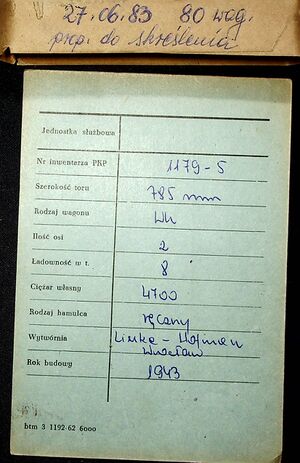 27.06.83 80 wag.
prop. do skreślenia
Jednostka służbowa
Nr inwentarza PKP 1179-5
Szerokość toru 785 mm
Rodzaj wagonu Wk
Ilość osi 2
Ładowność w t. 8
Ciężar własny 4700
Rodzaj hamulca ręczny
Wytwórnia Linke-Hofman
Wrocław
Rok budowy 1943
btm 3 1192-62 6000